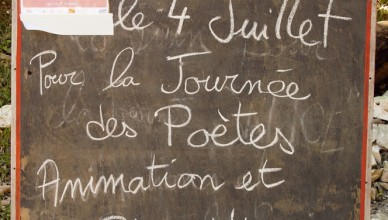 le 4 Juillet
Pour la Journée
des Poètes
Animation et